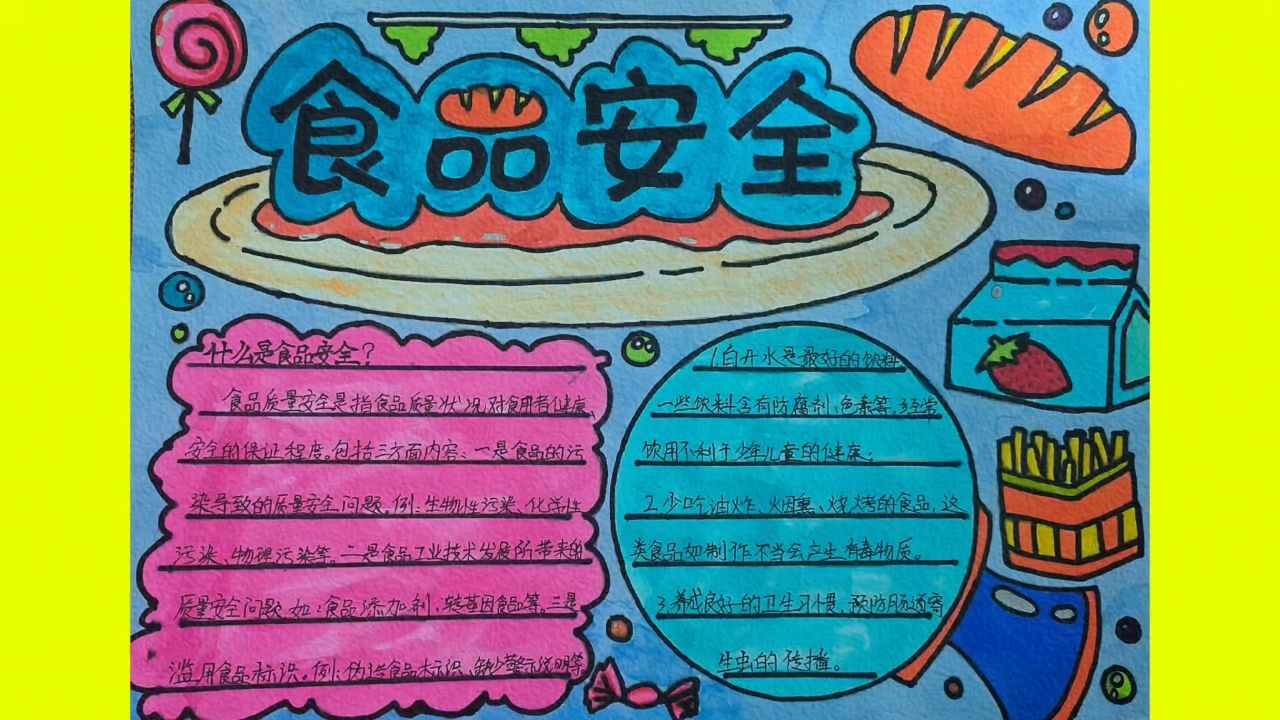 食品安全
什么是食品安全?
食品质量安全是指食品质量状况对食用者健康、
安全的保证程度。包括三方面内容:一是食品的污
染导致的质量安全问题。例:生物性污染、化学性
污染、物理污染等。二是食品工业技术发展所带来的
质量安全问题。如:食品添加剂、转基因食品等。三是
滥用食品标识。例:伪造食品标识、缺少警示说明等
1.白开水是最好的饮料
一些饮料含有防腐剂、色素等,经常
饮用不利于少年儿童的健康;
2.少吃油炸、烟熏、烧烤的食品,这
类食品如制作不当会产生有毒物质。
3.养成良好的卫生习惯,预防肠道寄
生虫的传播。